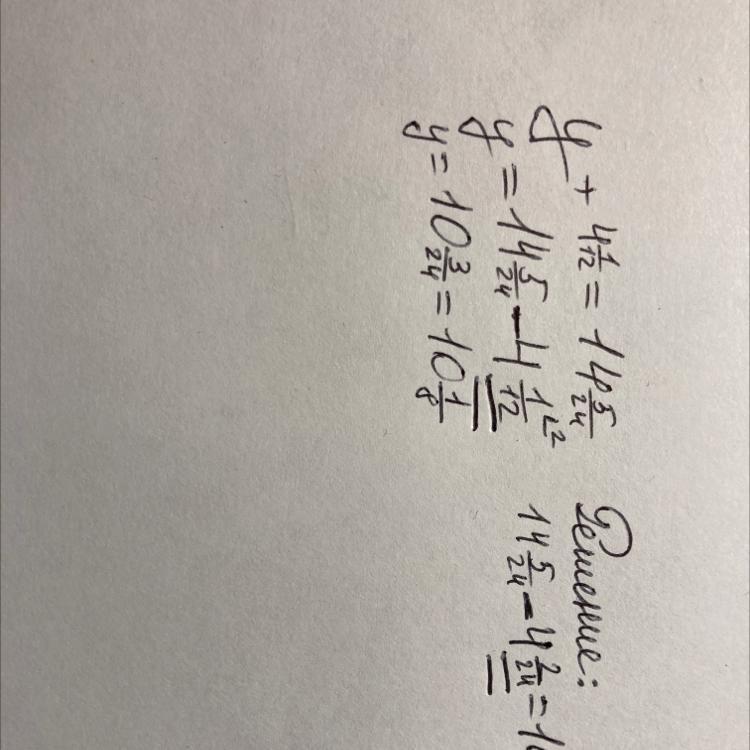 y + 4 1/12 = 14 5/24
y = 14 5/24 - 4 1/12 ^2
y = 10 3/24 = 10 1/8
Решение:
14 5/24 - 4 2/24 = 1